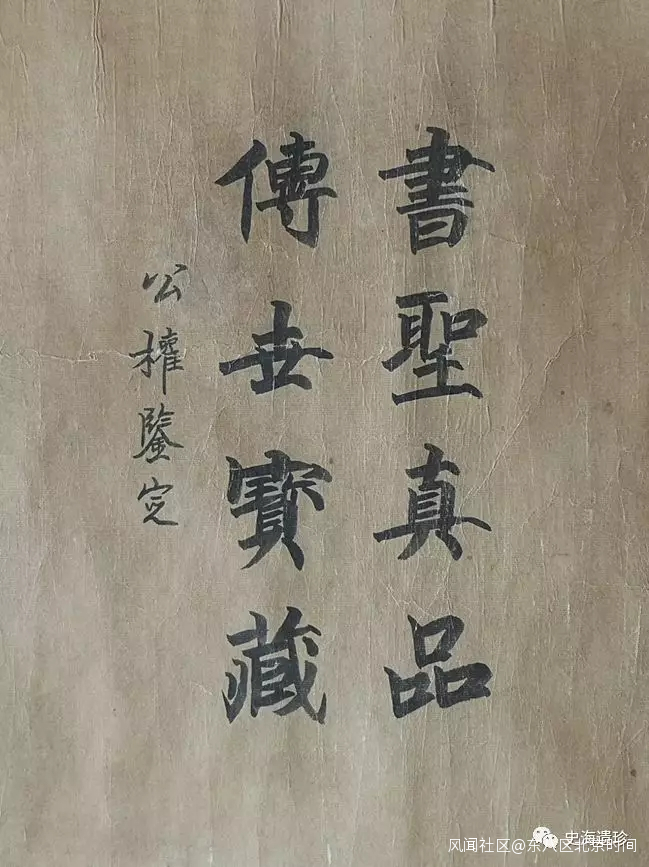 書聖真品
傳世寳藏
公權鑒定
史海遺珍
风闻社区@东八区北京时间